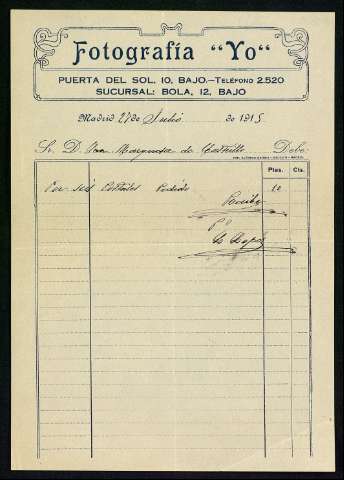 Fotografía "Yo"
PUERTA DEL SOL, 10, BAJO.—TELÉFONO 2.520
SUCURSAL: BOLA, 12, BAJO
Madrid 27 de Julio de 1915
Sr. D. Marqués de Debe:
Ptas. Cts.
Por seis Postales 10
Recibí
P.O.